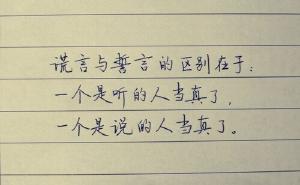 谎言与誓言的区别在于：
一个是听的人当真了，
一个是说的人当真了。